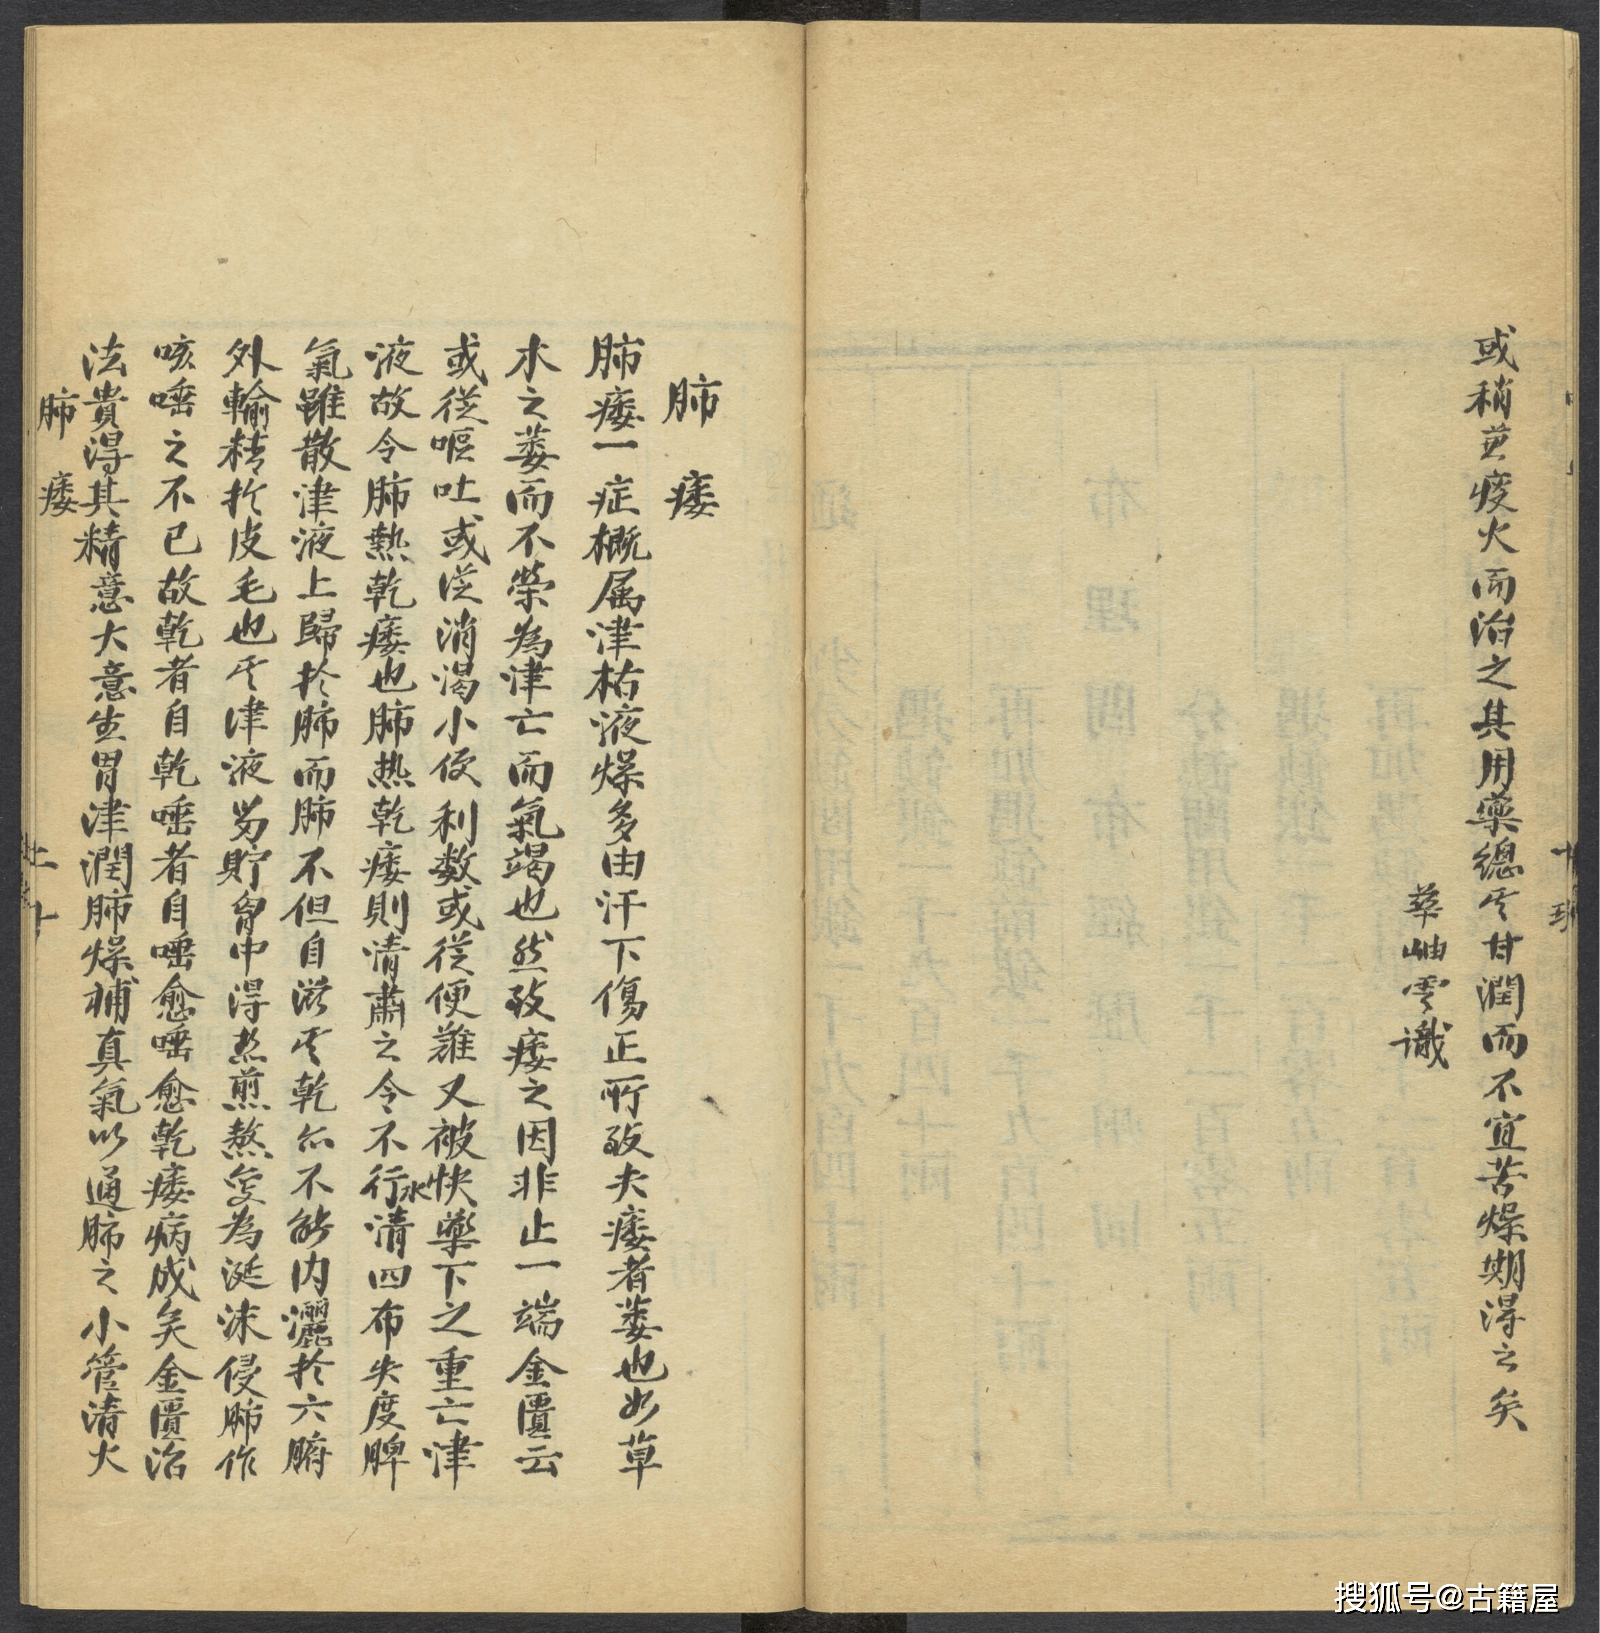 或稍兼痰火而治之其用藥總以甘潤而不宜苦燥期得之矣
華岫雲識
肺痿
肺痿一症概属津枯液燥多由汗下傷正所致夫痿者萎也如草
木之萎而不榮為津亡而氣竭也然致痿之因非止一端金匱云
或從嘔吐或從消渴小便利数或從便難又被快藥下之重亡津
液故令肺熱乾痿也肺热乾痿則清肅之令不行水清四布失度脾
氣雖散津液上歸於肺而肺不但自滋其乾亦不能内灑於六腑
外輸精於皮毛也其津液留貯胷中得热煎熬變為涎沫侵肺作
咳唾之不已故乾者自乾唾者自唾愈唾愈乾痿病成矣金匱治
法貴得其精意大意生胃津潤肺燥補真氣以通肺之小管清火
肺痿
二十